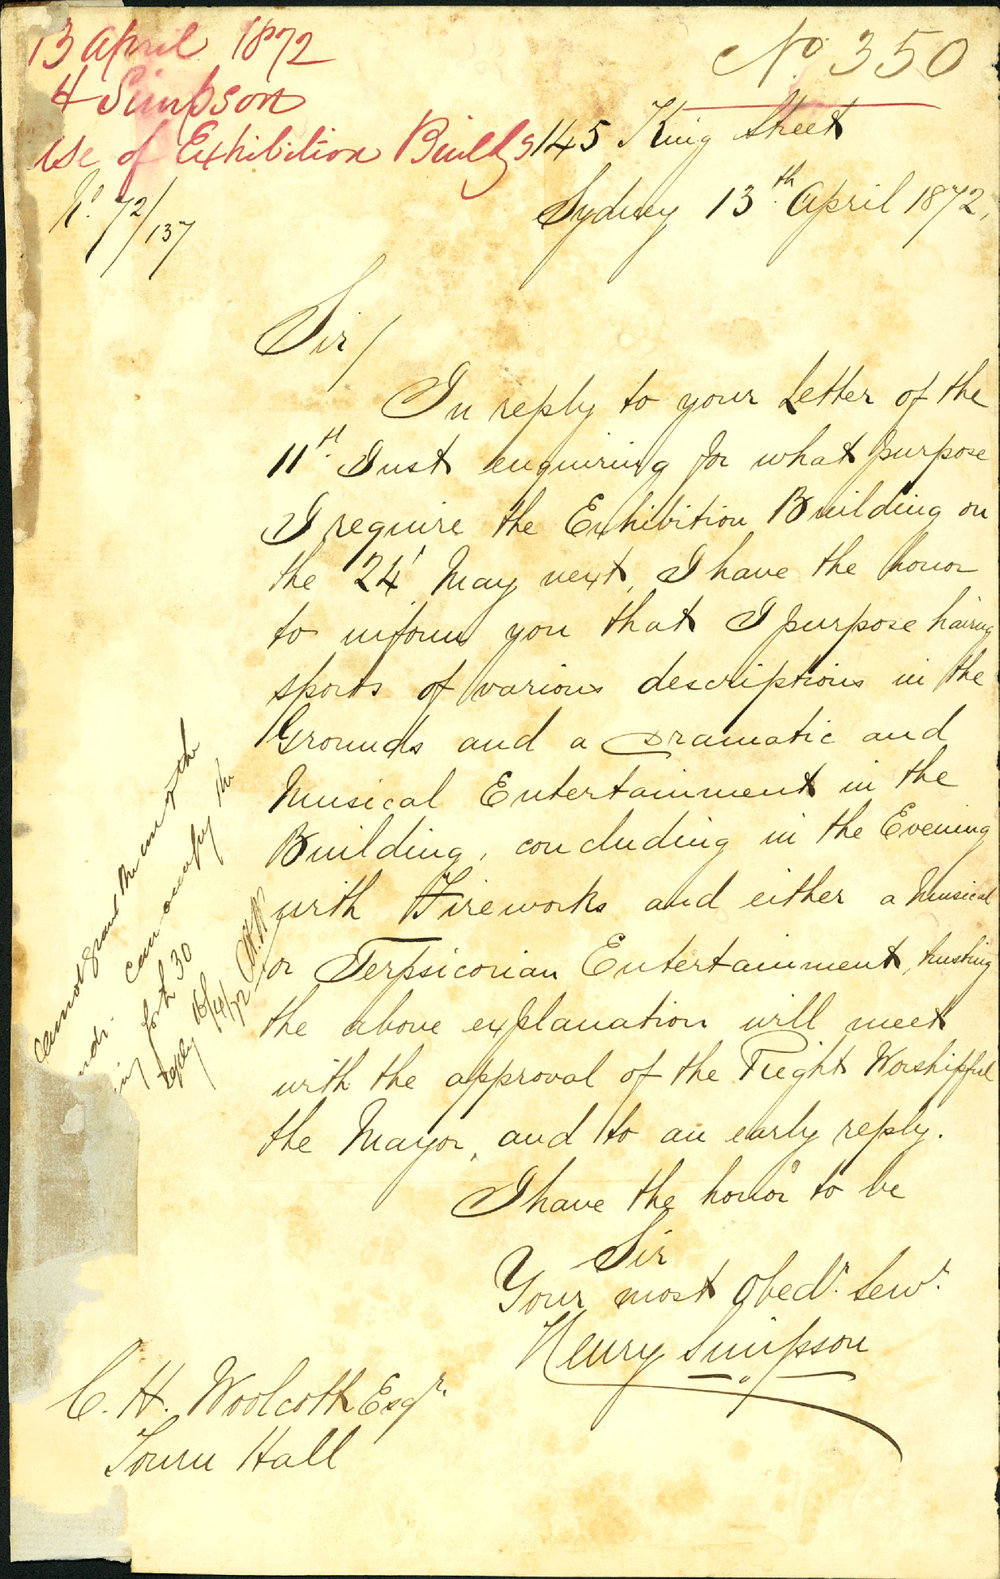 13 April 1872
H Simpson
use of Exhibition Buildgs
No. 72/137
No. 350
145 King Street
Sydney 13th April 1872,
Sir/
In reply to your Letter of the
11th Inst enquiring for what purpose
I require the Exhibition Building on
the 24' May next, I have the honor
to inform you that I purpose having
sports of various descriptions in the
Grounds and a Dramatic and
Musical Entertainment in the
Building, concluding in the Evening
with Fireworks and either a Musical
or Terpsicorian Entertainment, trusting
the above explanation will meet
with the approval of the Right Worshipful
the Mayor, and to an early reply.
I have the honor to be
Sir
Your most Obedr. Serv.
Henry Simpson
C. H. Woolcott Esqr.
Town Hall
Cannot grant the use of the
can occupy the
for £ 30
reply 16/4/72